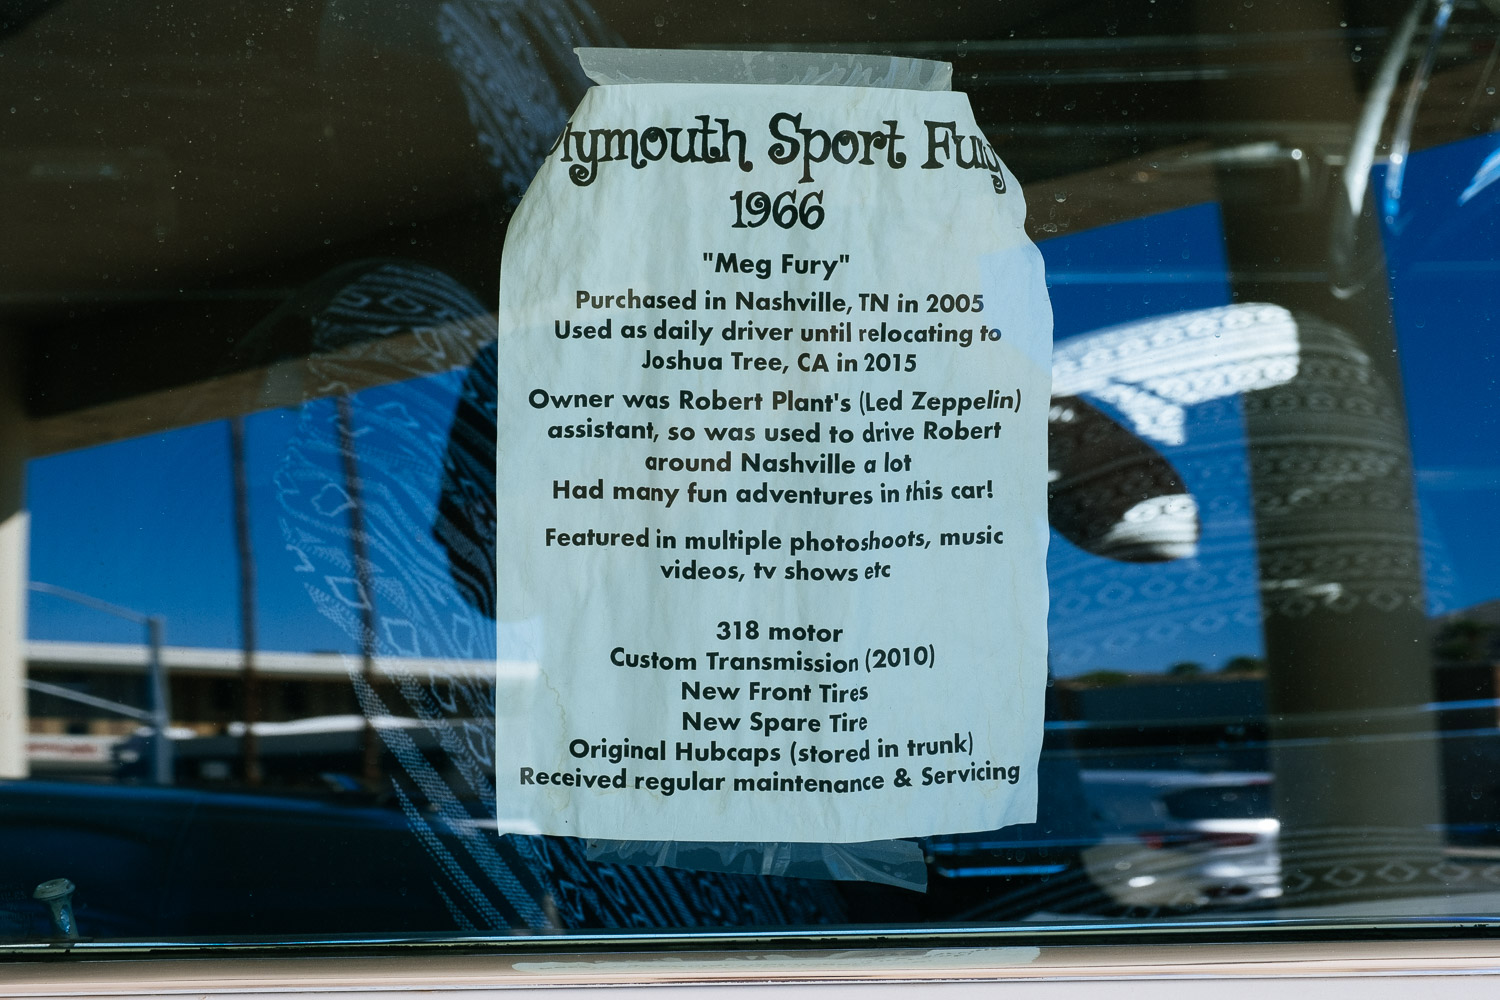 Plymouth Sport Fury
1966
"Meg Fury"
Purchased in Nashville, TN in 2005
Used as daily driver until relocating to
Joshua Tree, CA in 2015
Owner was Robert Plant's (Led Zeppelin)
assistant, so was used to drive Robert
around Nashville a lot
Had many fun adventures in this car!
Featured in multiple photoshoots, music
videos, tv shows etc
318 motor
Custom Transmission (2010)
New Front Tires
New Spare Tire
Original Hubcaps (stored in trunk)
Received regular maintenance & Servicing